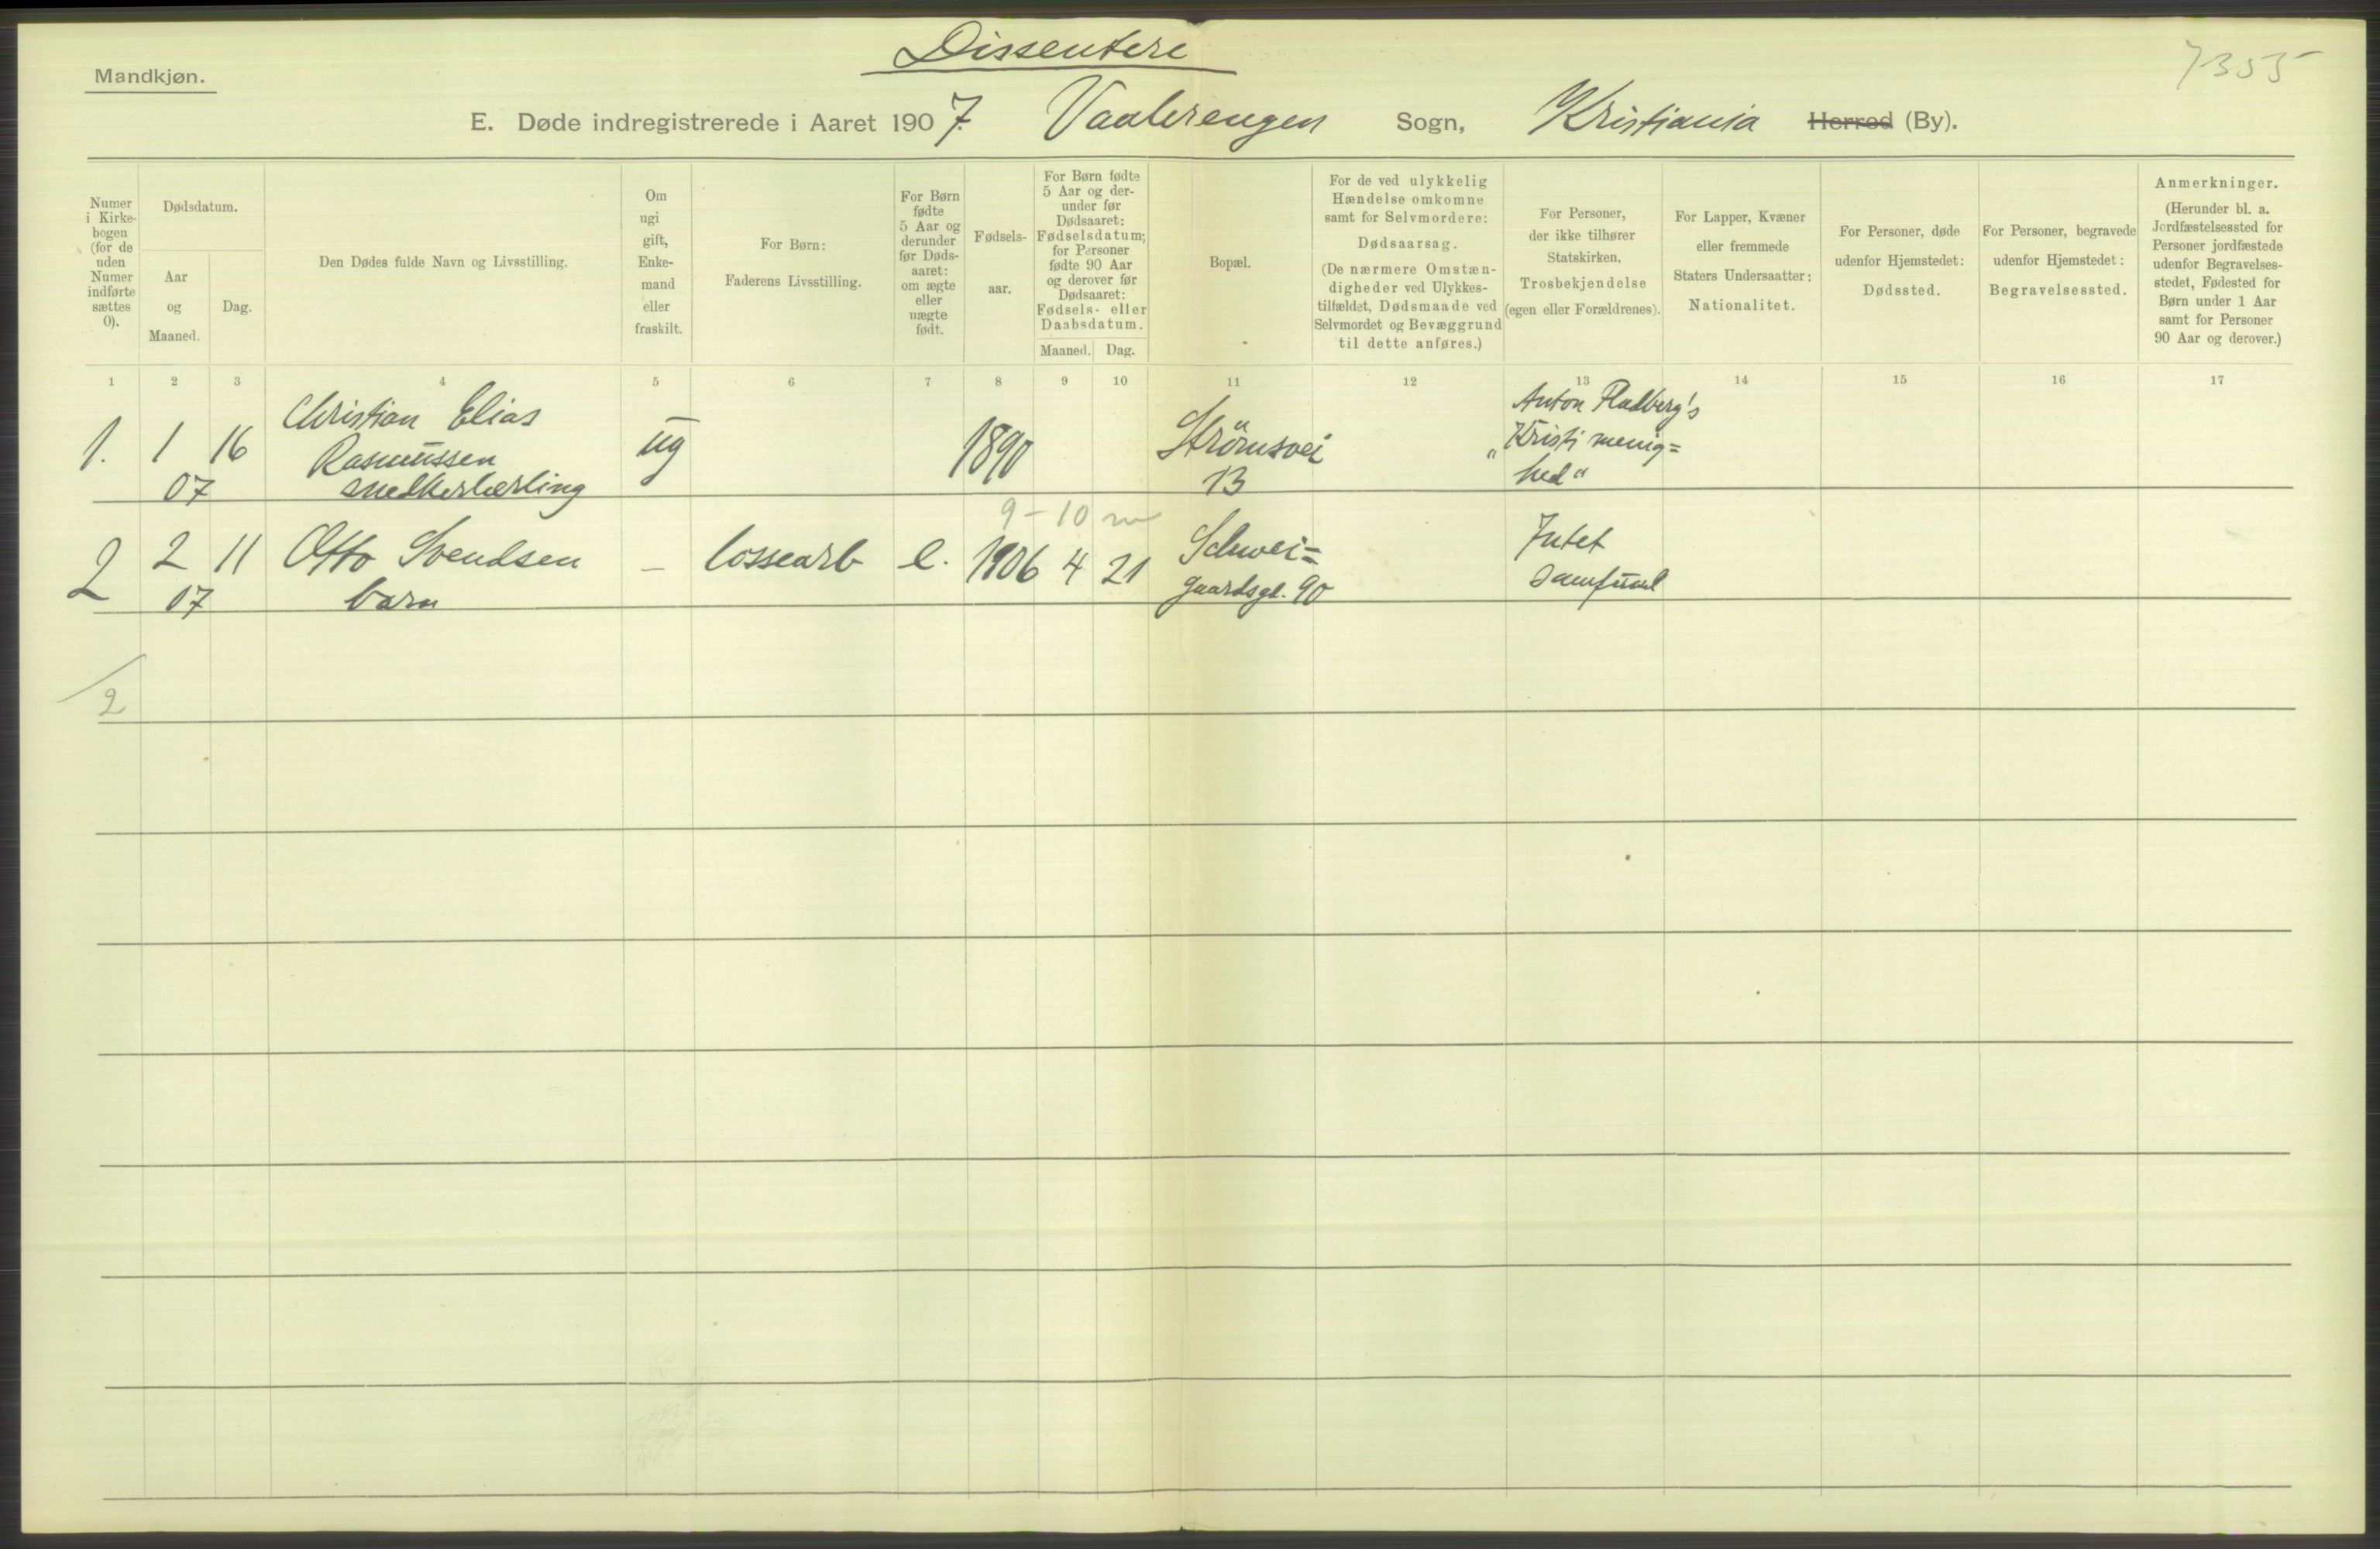 Dissentere
7355
Mandkjøn.
E. Døde indregistrerede i Aaret 1907. Vaalerengen Sogn, Kristiania Herred (By).
Numer
i Kirke-
bogen
(for de
uden
Numer
indførte
sættes
0).
Dødsdatum.
Aar
og
Maaned.
Dag.
Den Dødes fulde Navn og Livsstilling.
Om
ugi
gift,
Enke-
mand
eller
fraskilt.
For Børn:
Faderens Livsstilling.
For Børn
fødte
5 Aar og
derunder
før Døds-
aaret:
om ægte
eller
uægte
født.
Fødsels-
aar.
For Børn fødte
5 Aar og der-
under før
Dødsaaret:
Fødselsdatum;
for Personer
fødte 90 Aar
og derover før
Dødsaaret:
Fødsels- eller
Daabsdatum.
Maaned. Dag.
Bopæl.
For de ved ulykkelig
Hændelse omkomne
samt for Selvmordere:
Dødsaarsag.
(De nærmere Omstæn-
digheder ved Ulykkes-
tilfældet, Dødsmaade ved
Selvmordet og Bevæggrund
til dette anføres.)
For Personer,
der ikke tilhører
Statskirken,
Trosbekjendelse
(egen eller Forældrenes).
For Lapper, Kvæner
eller fremmede
Staters Undersaatter:
Nationalitet.
For Personer, døde
udenfor Hjemstedet:
Dødssted.
For Personer, begravede
udenfor Hjemstedet:
Begravelsessted.
Anmerkninger.
(Herunder bl. a.
Jordfæstelsessted for
Personer jordfæstede
udenfor Begravelses-
stedet, Fødested for
Børn under 1 Aar
samt for Personer
90 Aar og derover.)
1 2 3 4 5 6 7 8 9 10 11 12 13 14 15 16 17
1. 1 16
07
Christian Elias
Rasmussen
snedkerlærling
ug
1890
Strömsvei
13
Anton
"Kristi menig=
hed"
9 - 10 m
2 2 11
07
Otto Svendsen
barn
– lossearb e. 1906 4 21
Schwei=
gaardsgt. 90
Intet
samfund
2